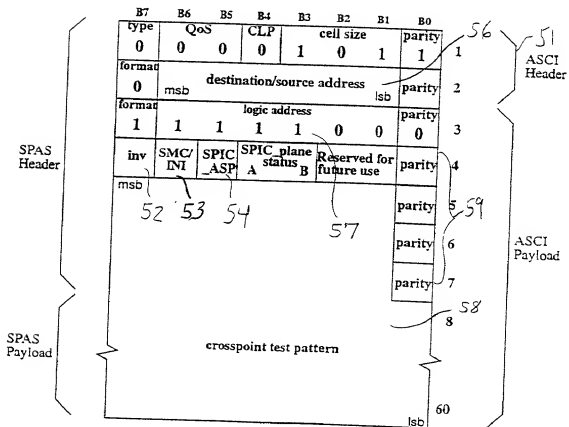 B7 B6 B5 B4 B3 B2 B1 B0
type QoS CLP cell size parity
0 0 0 0 1 0 1 1 1
56
51
ASCI Header
format destination/source address parity 2
0 msb lsb
format logic address parity
1 1 1 1 1 0 0 0 3
SPAS Header
inv SMC/INI SPIC_ASP SPIC_plane status A B Reserved for future use parity 4
msb
52 53 54 57
parity 5
59
parity 6
parity 7
ASCI Payload
58
8
SPAS Payload
crosspoint test pattern
60
lsb